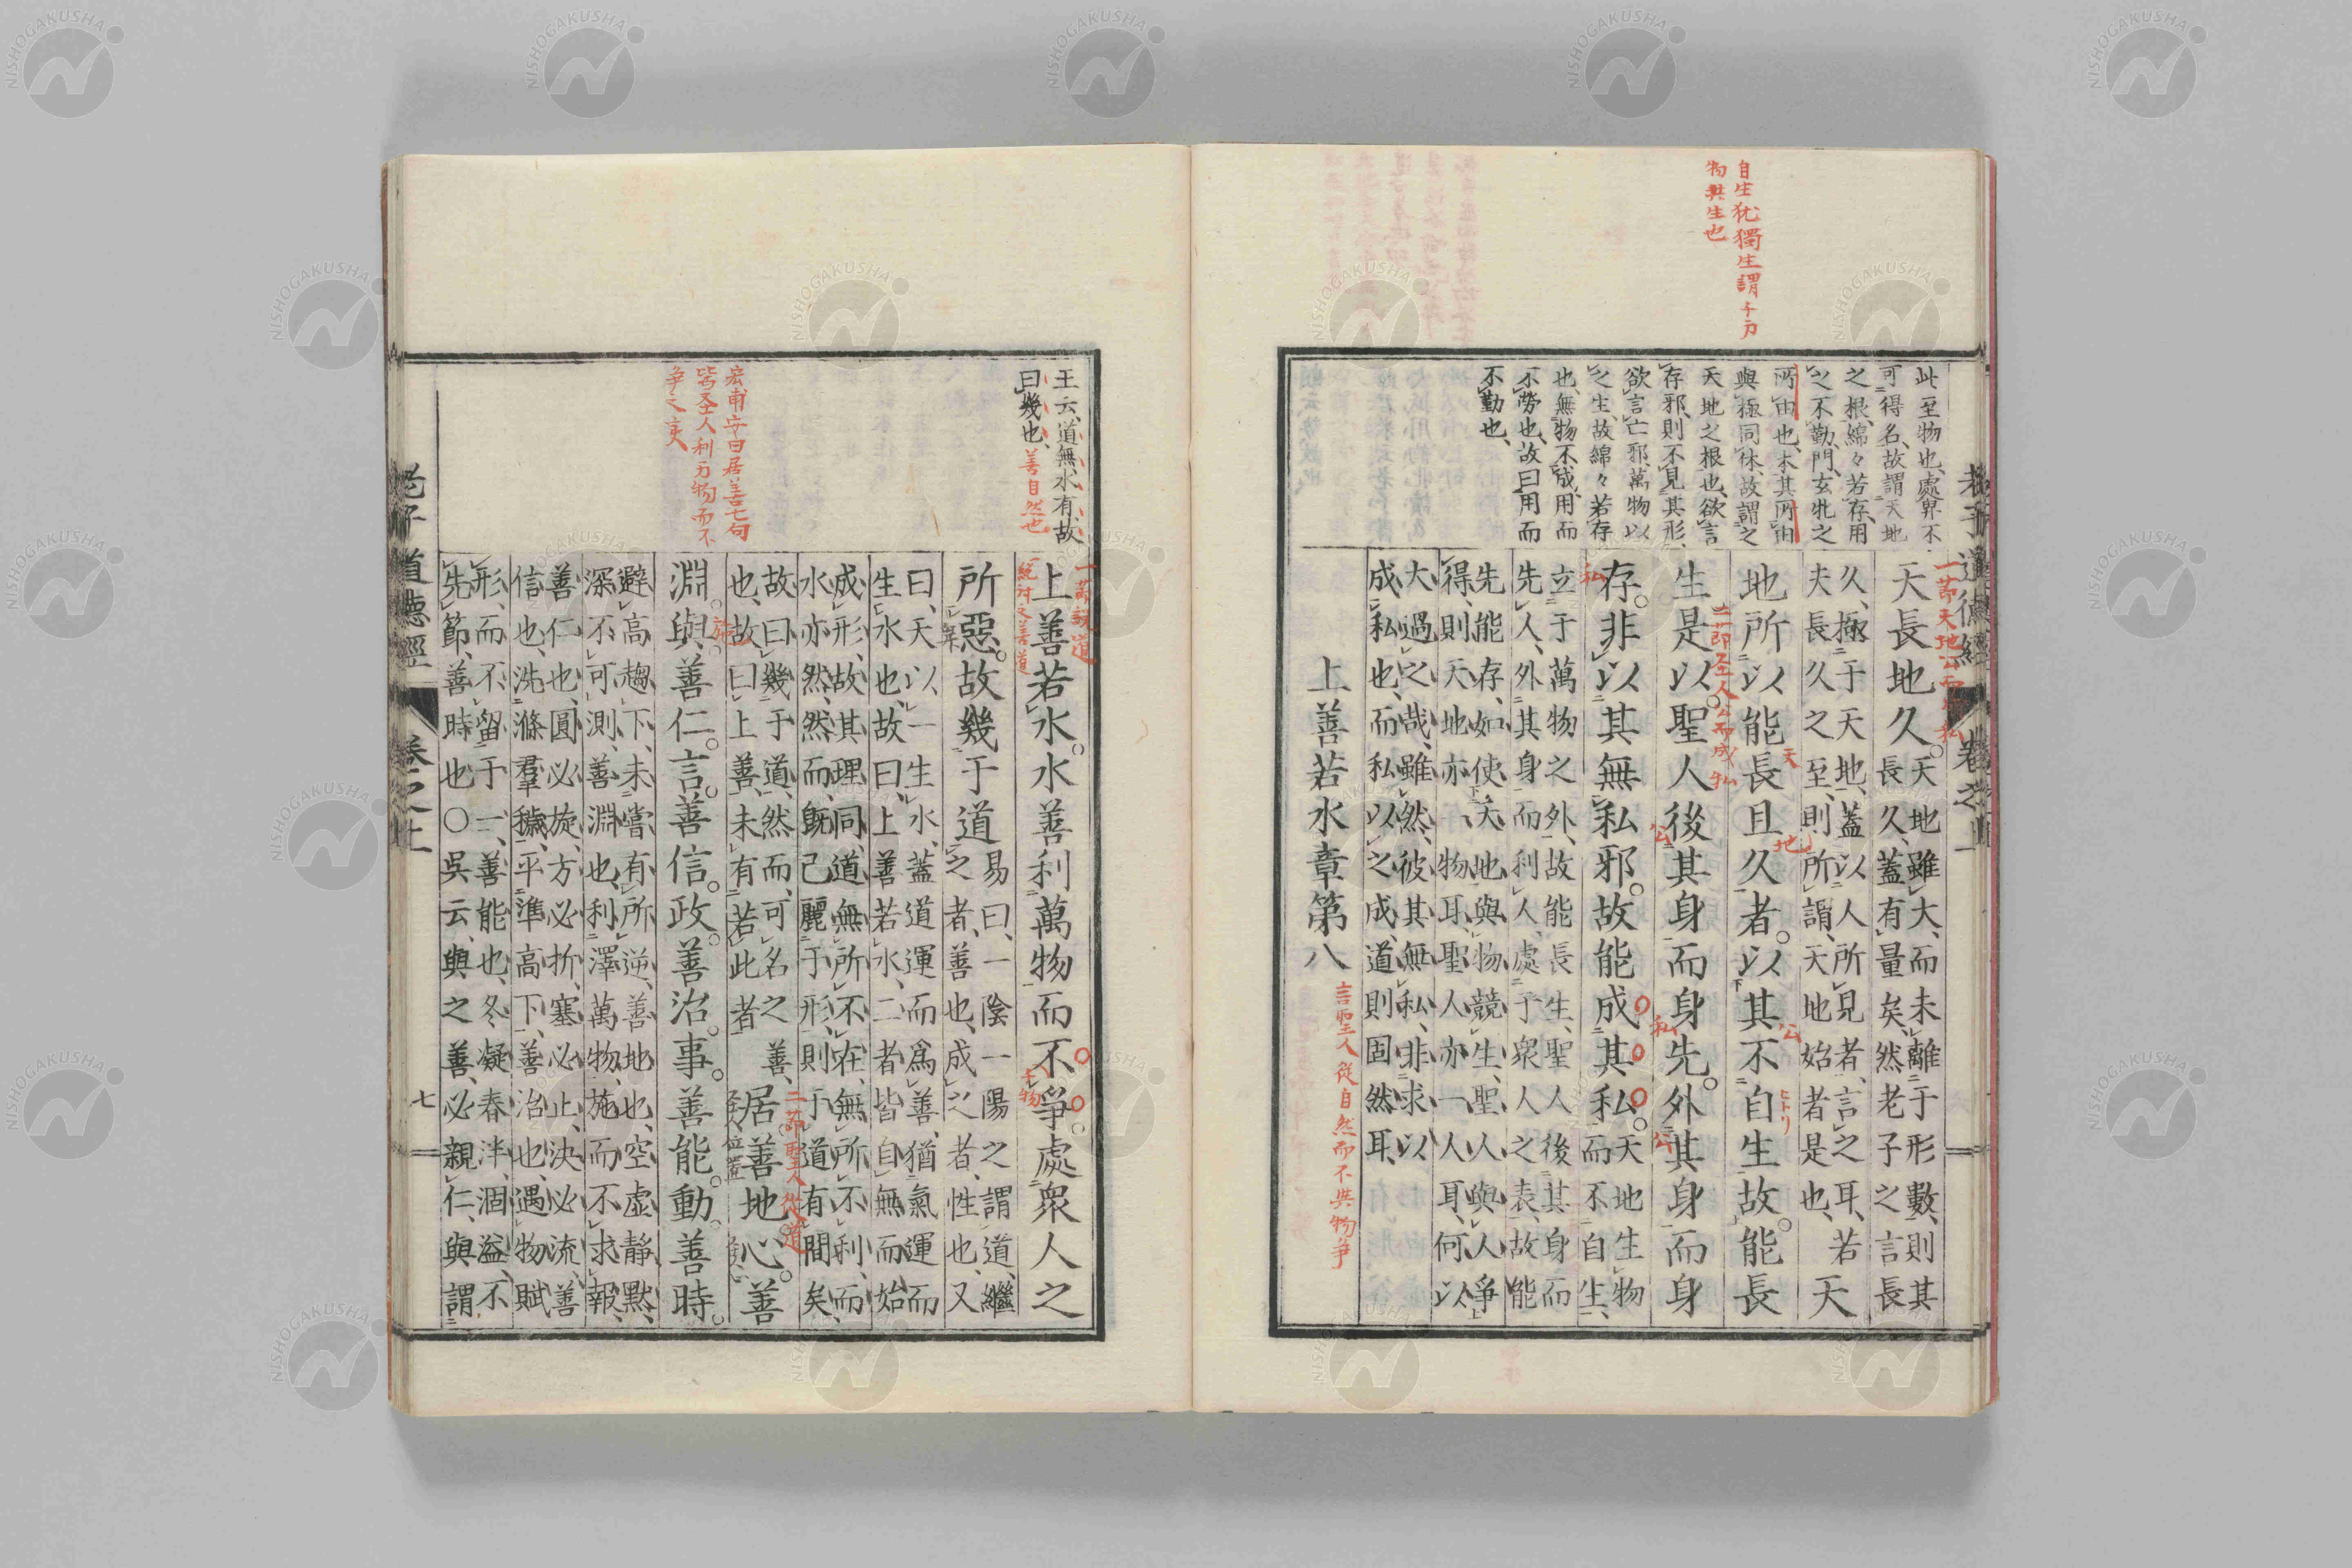 老子道德經
卷之上
自生犹獨生謂不与
物共生也
此至物也、處卑不
可得名、故謂天地
之根、綿々若存、用
之不勤、門、玄牝之
所由也、本其所由
與極同体、故謂之
天地之根也、欲言
存邪、則不見其形、
欲言亡邪、萬物以
之生、故綿々若存
也、無物不成、用而
不勞也、故曰用而
不勤也、
一節天地公而成私
天長地久。天地雖大、而未離于形數、則其
長久、蓋有量矣然老子之言長
久、極于天地、蓋以人所見者、言之耳、若
夫長久之至、則所謂、天地始者是也、
天
地所以能長且久者。以其不自生故。能長
天
地
公
ヒトリ
二節圣人公而成私
生是以。聖人後其身而身先。外其身而身
公
私
公
私
存。非以其無私邪。故能成其私。天地生物
而不自生、
立于萬物之外、故能長生、聖人後其身而
先人、外其身而利人、處于衆人之表、故能
先能存、如使天地與物競生、聖人與人爭
得、則天地亦一物耳、聖人亦一人耳、何以
大過之哉、雖然、彼其無私、非求以
成私也、而私以之成、道則固然耳、
上善若水章第八
言聖人從自然而不與物争
王云、道無水有、故
曰幾也、
善自然也
宏甫安曰居善七句
皆圣人利万物而不
争之実
一節説道
絶対之善道
上善若水。水善利萬物而不爭。處衆人之
于物
所惡。故幾于道易曰、一陰一陽之謂道、繼
之者、善也、成之者、性也、又
曰、天以一生水、蓋道運而爲善、猶氣運而
生水也、故曰、上善若水、二者皆自無而始
成形、故其理同、道無所不在、無所不利、而
水亦然、然而既已麗于形、則于道有間矣、
故曰、幾于道、然而可名之善、
也、故曰上善、未有若此者
二節聖人從道
居善地。心善
淵。與善仁。言善信。政善治。事善能。動善時。
避高趨下、未嘗有所逆、善地也、空虛靜默、
深不可測、善淵也、利澤萬物、施而不求報、
善仁也、圓必旋、方必折、塞必止、決必流、善
信也、洗滌羣穢、平準高下、善治也、遇物賦
形、而不留于一、善能也、冬凝春泮、涸溢不
先節、善時也〇吳云、與之善、必親仁、與謂
老子道德經
卷之上
七
NISHOGAKUSHA